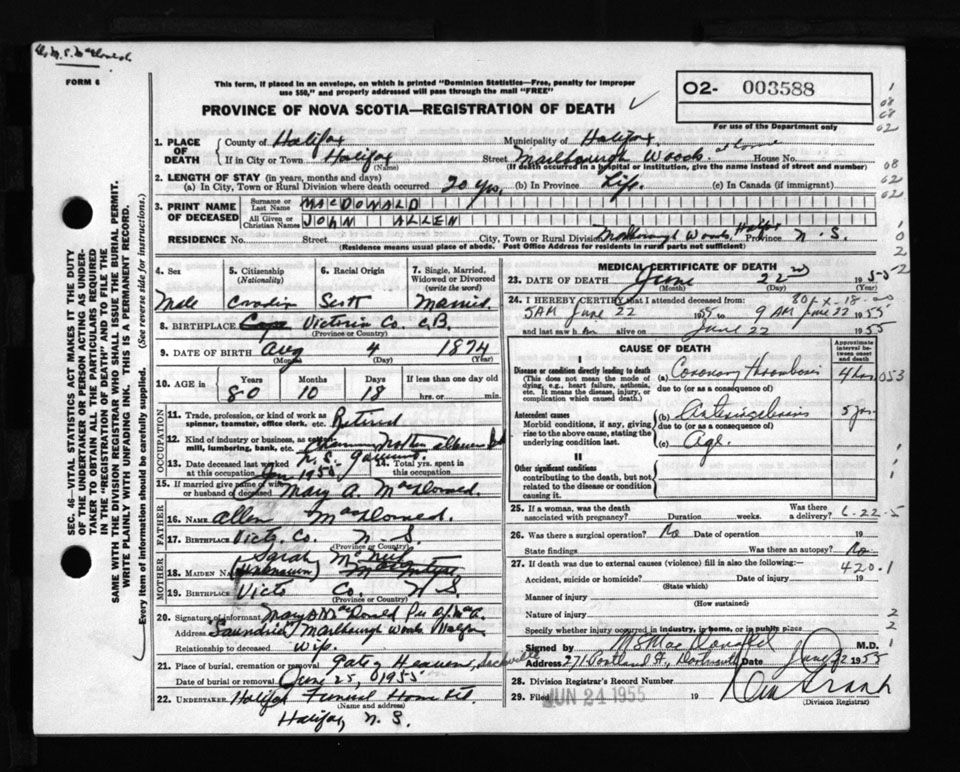 FORM 6
This form, if placed in an envelope, on which is printed "Dominion Statistics—Free, penalty for improper
use $50," and properly addressed will pass through the mail "FREE"
PROVINCE OF NOVA SCOTIA—REGISTRATION OF DEATH
O2- 003588
For use of the Department only
1. PLACE OF DEATH
County of Halifax Municipality of Halifax
If in City or Town Halifax (Name) Street Marlbourgh Woods at home House No.
(If death occurred in a hospital or institution, give the name instead of street and number)
2. LENGTH OF STAY (in years, months and days)
(a) In City, Town or Rural Division where death occurred 20 yrs, (b) In Province Life. (c) In Canada (if immigrant)
3. PRINT NAME OF DECEASED
Surname or Last Name MACDONALD
All Given or Christian Names JOHN ALLEN
RESIDENCE No. Street City, Town or Rural Division Marlborough Woods, Halifax Province N.S.
(Residence means usual place of abode. Post Office Address for residents in rural parts not sufficient)
4. Sex Male
5. Citizenship (Nationality)
6. Racial Origin
7. Single, Married, Widowed or Divorced (write the word) Married.
8. BIRTHPLACE Cape Victoria Co. C.B.
(Province or Country)
9. DATE OF BIRTH Aug (Month) 4 (Day) 1874 (Year)
10. AGE in Years 80 Months 10 Days 18 If less than one day old hrs. or min.
OCCUPATION
11. Trade, profession, or kind of work as spinner, teamster, office clerk, etc. Retired
12. Kind of industry or business, as cotton mill, lumbering, bank, etc.
N.S.
13. Date deceased last worked at this occupation 1955 14. Total yrs. spent in this occupation
15. If married give name of wife or husband of deceased Mary A. MacDonald.
FATHER
16. NAME Allen MacDonald.
17. BIRTHPLACE Victs. Co. N.S.
(Province or Country)
MOTHER
18. MAIDEN NAME Sarah McNeil (Unknown)
19. BIRTHPLACE Victo Co. N S
(Province or Country)
20. Signature of informant Mary A MacDonald Per
Address Marlbourgh Woods Halifax
Relationship to deceased Wife.
21. Place of burial, cremation or removal Gate of Heaven, Sackville
Date of burial or removal June 25, 1955
22. UNDERTAKER Halifax Funeral Home Ltd.
(Name and address)
Halifax N.S.
MEDICAL CERTIFICATE OF DEATH
23. DATE OF DEATH June (Month) 22nd (Day) 1955 (Year)
80-X-18-00
24. I HEREBY CERTIFY that I attended deceased from:
5AM June 22 1955 to 9 AM June 22 1955
and last saw h im alive on June 22 1955
CAUSE OF DEATH
Approximate interval between onset and death
I
Disease or condition directly leading to death
(This does not mean the mode of dying, e.g., heart failure, asthma, etc. It means the disease, injury, or complication which caused death.)
(a) Coronary Thrombosis 4 hrs 053
due to (or as a consequence of)
Antecedent causes
Morbid conditions, if any, giving rise to the above cause, stating the underlying condition last.
(b) Arteriosclerosis 5 yrs.
due to (or as a consequence of)
(c) Age.
II
Other significant conditions
contributing to the death, but not related to the disease or condition causing it.
25. If a woman, was the death associated with pregnancy? Duration weeks. Was there a delivery? 6-22-5
26. Was there a surgical operation? No Date of operation 19
State findings Was there an autopsy? No
27. If death was due to external causes (violence) fill in also the following: 420.1
Accident, suicide or homicide? (State which) Date of injury 19
Manner of injury (How sustained)
Nature of injury 2
Specify whether injury occurred in industry, in home, or in public place 2
Signed by M S MacDonald M.D.
Address 271 Portland St, Dartmouth Date June 22 1955
28. Division Registrar's Record Number
29. Filed JUN 24 1955 19 Grant
(Division Registrar)
SEC. 46—VITAL STATISTICS ACT MAKES IT THE DUTY
OF THE UNDERTAKER OR PERSON ACTING AS UNDERTAKER
TO OBTAIN ALL THE PARTICULARS REQUIRED
IN THE "REGISTRATION OF DEATH" AND TO FILE THE
SAME WITH THE DIVISION REGISTRAR WHO SHALL ISSUE THE BURIAL PERMIT.
WRITE PLAINLY WITH UNFADING INK. THIS IS A PERMANENT RECORD.
Every item of information should be carefully supplied. (See reverse side for instructions.)